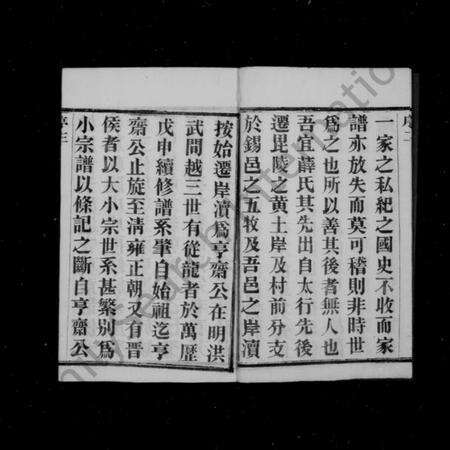 一家之私紀之國史不收而家
譜亦放失而莫可稽則非時世
爲之也所以善其後者無人也
吾宜薛氏其先出自太行先後
遷毘陵之黄土岸及村前分支
於錫邑之五牧及吾邑之岸瀆
按始遷岸瀆爲亨齋公在明洪
武間越三世有從龍者於萬歷
戊申續修譜系肇自始祖迄亨
齋公止旋至淸雍正朝又有晋
侯者以大小宗世系甚繁别爲
小宗譜以條記之斷自亨齋公
序三